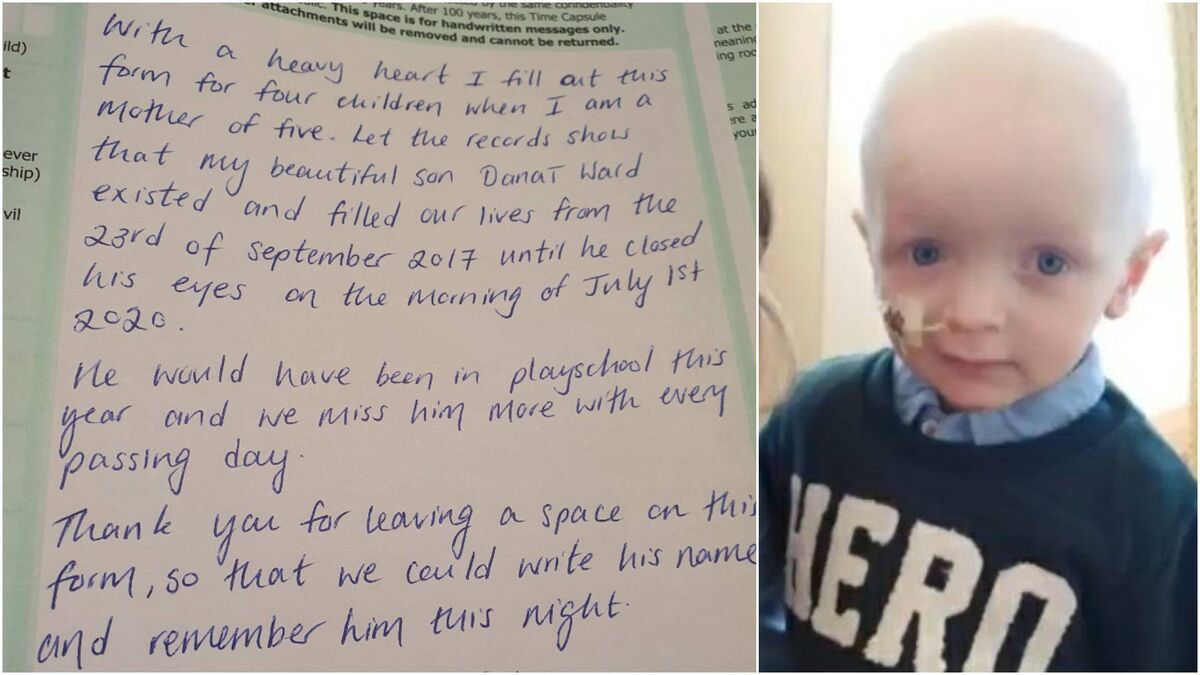 by the same confidentiality
years. After 100 years, this Time Capsule
This space is for handwritten messages only.
attachments will be removed and cannot be returned.
With a heavy heart I fill out this
form for four children when I am a
Mother of five. Let the records show
that my beautiful son DanaT Ward
existed and filled our lives from the
23rd of September 2017 until he closed
his eyes on the morning of July 1st
2020.
He would have been in playschool this
year and we miss him more with every
passing day.
Thank you for leaving a space on this
form, so that we could write his name
and remember him this night.
ild)
t
ever
ship)
vil
at the
meaning
ing roo
s ad
ere a
your
HERO